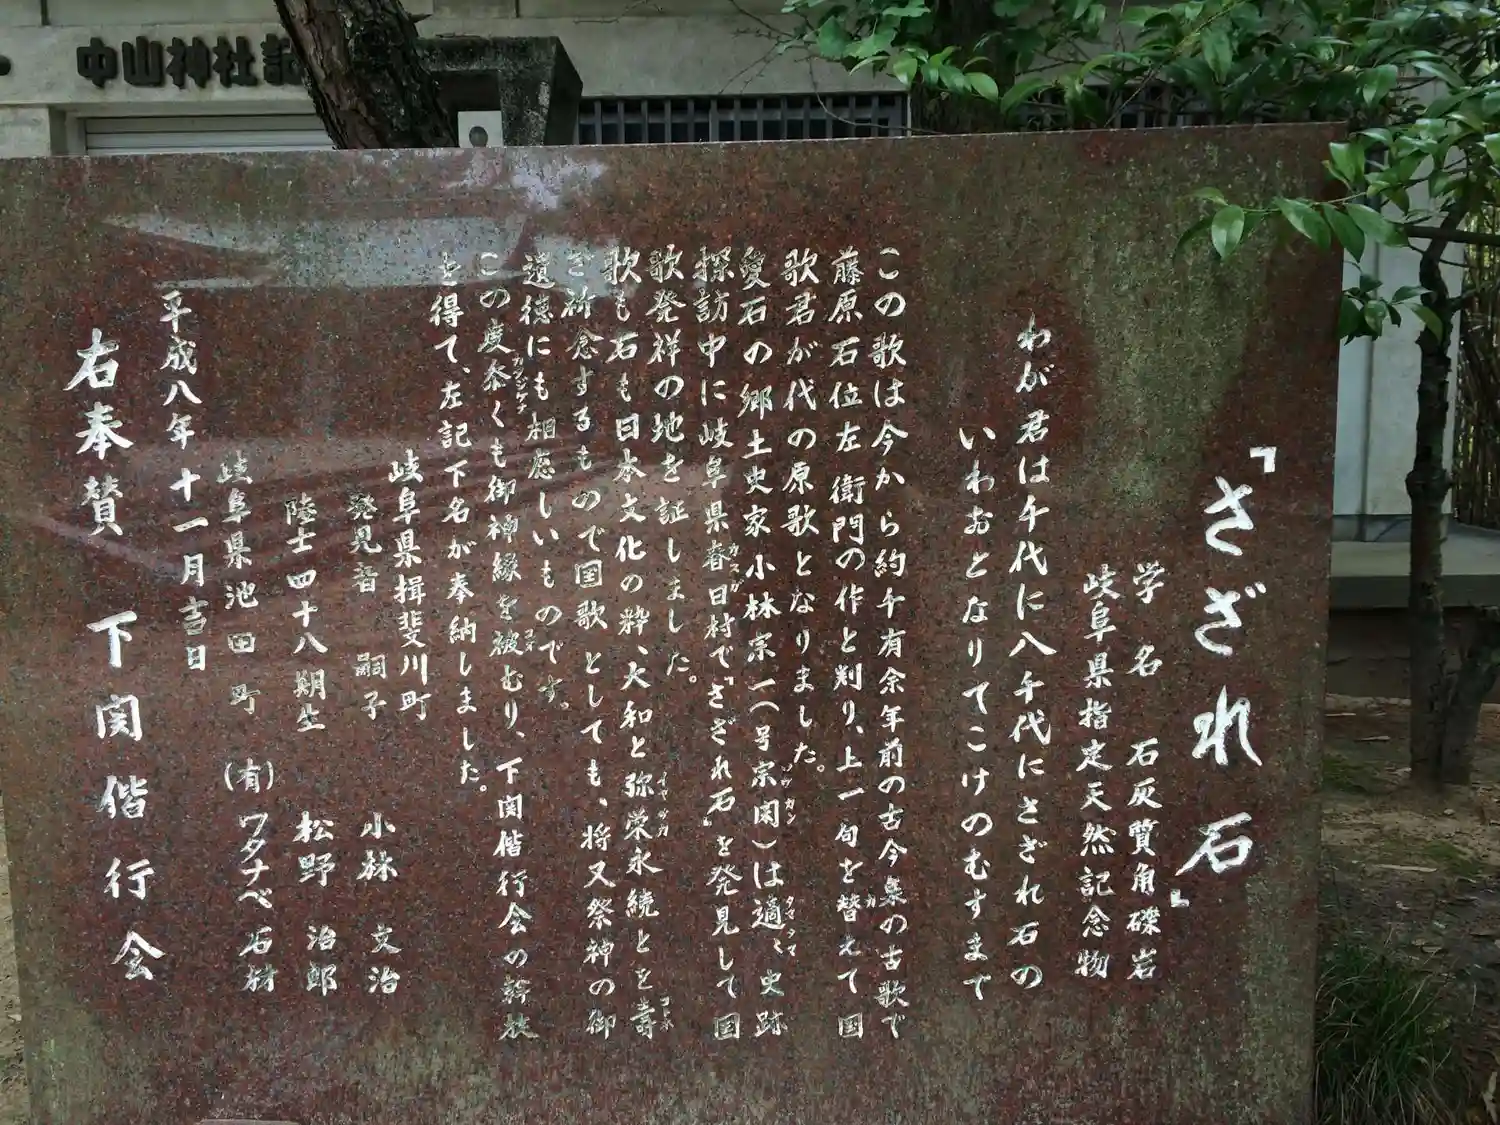 中山神社記
「さざれ石」
学名 石灰質角礫岩
岐阜県指定天然記念物
わが君は千代に八千代にさざれ石の
いわおとなりてこけのむすまで
この歌は今から約千有余年前の古今集の古歌で
藤原石位左衛門の作と判り、上一句を替えて国
歌君が代の原歌となりました。
愛石の郷土史家小林宗一(号宗閑)は適々史跡
探訪中に岐阜県春日村で「さざれ石」を発見して国
歌発祥の地を証しました。
歌も石も日本文化の粋、大和と弥栄永続とを壽
ぎ祈念するもので国歌としても、将又祭神の御
遺徳にも相應しいものです。
この度忝くも御神縁を被むり、下関偕行会の斡旋
を得て、左記下名が奉納しました。
岐阜県揖斐川町
発見者 嗣子 小林 文治
陸士四十八期生 松野 治郎
岐阜県池田町 (有)ワタナベ石材
平成八年十一月吉日
右奉賛 下関偕行会